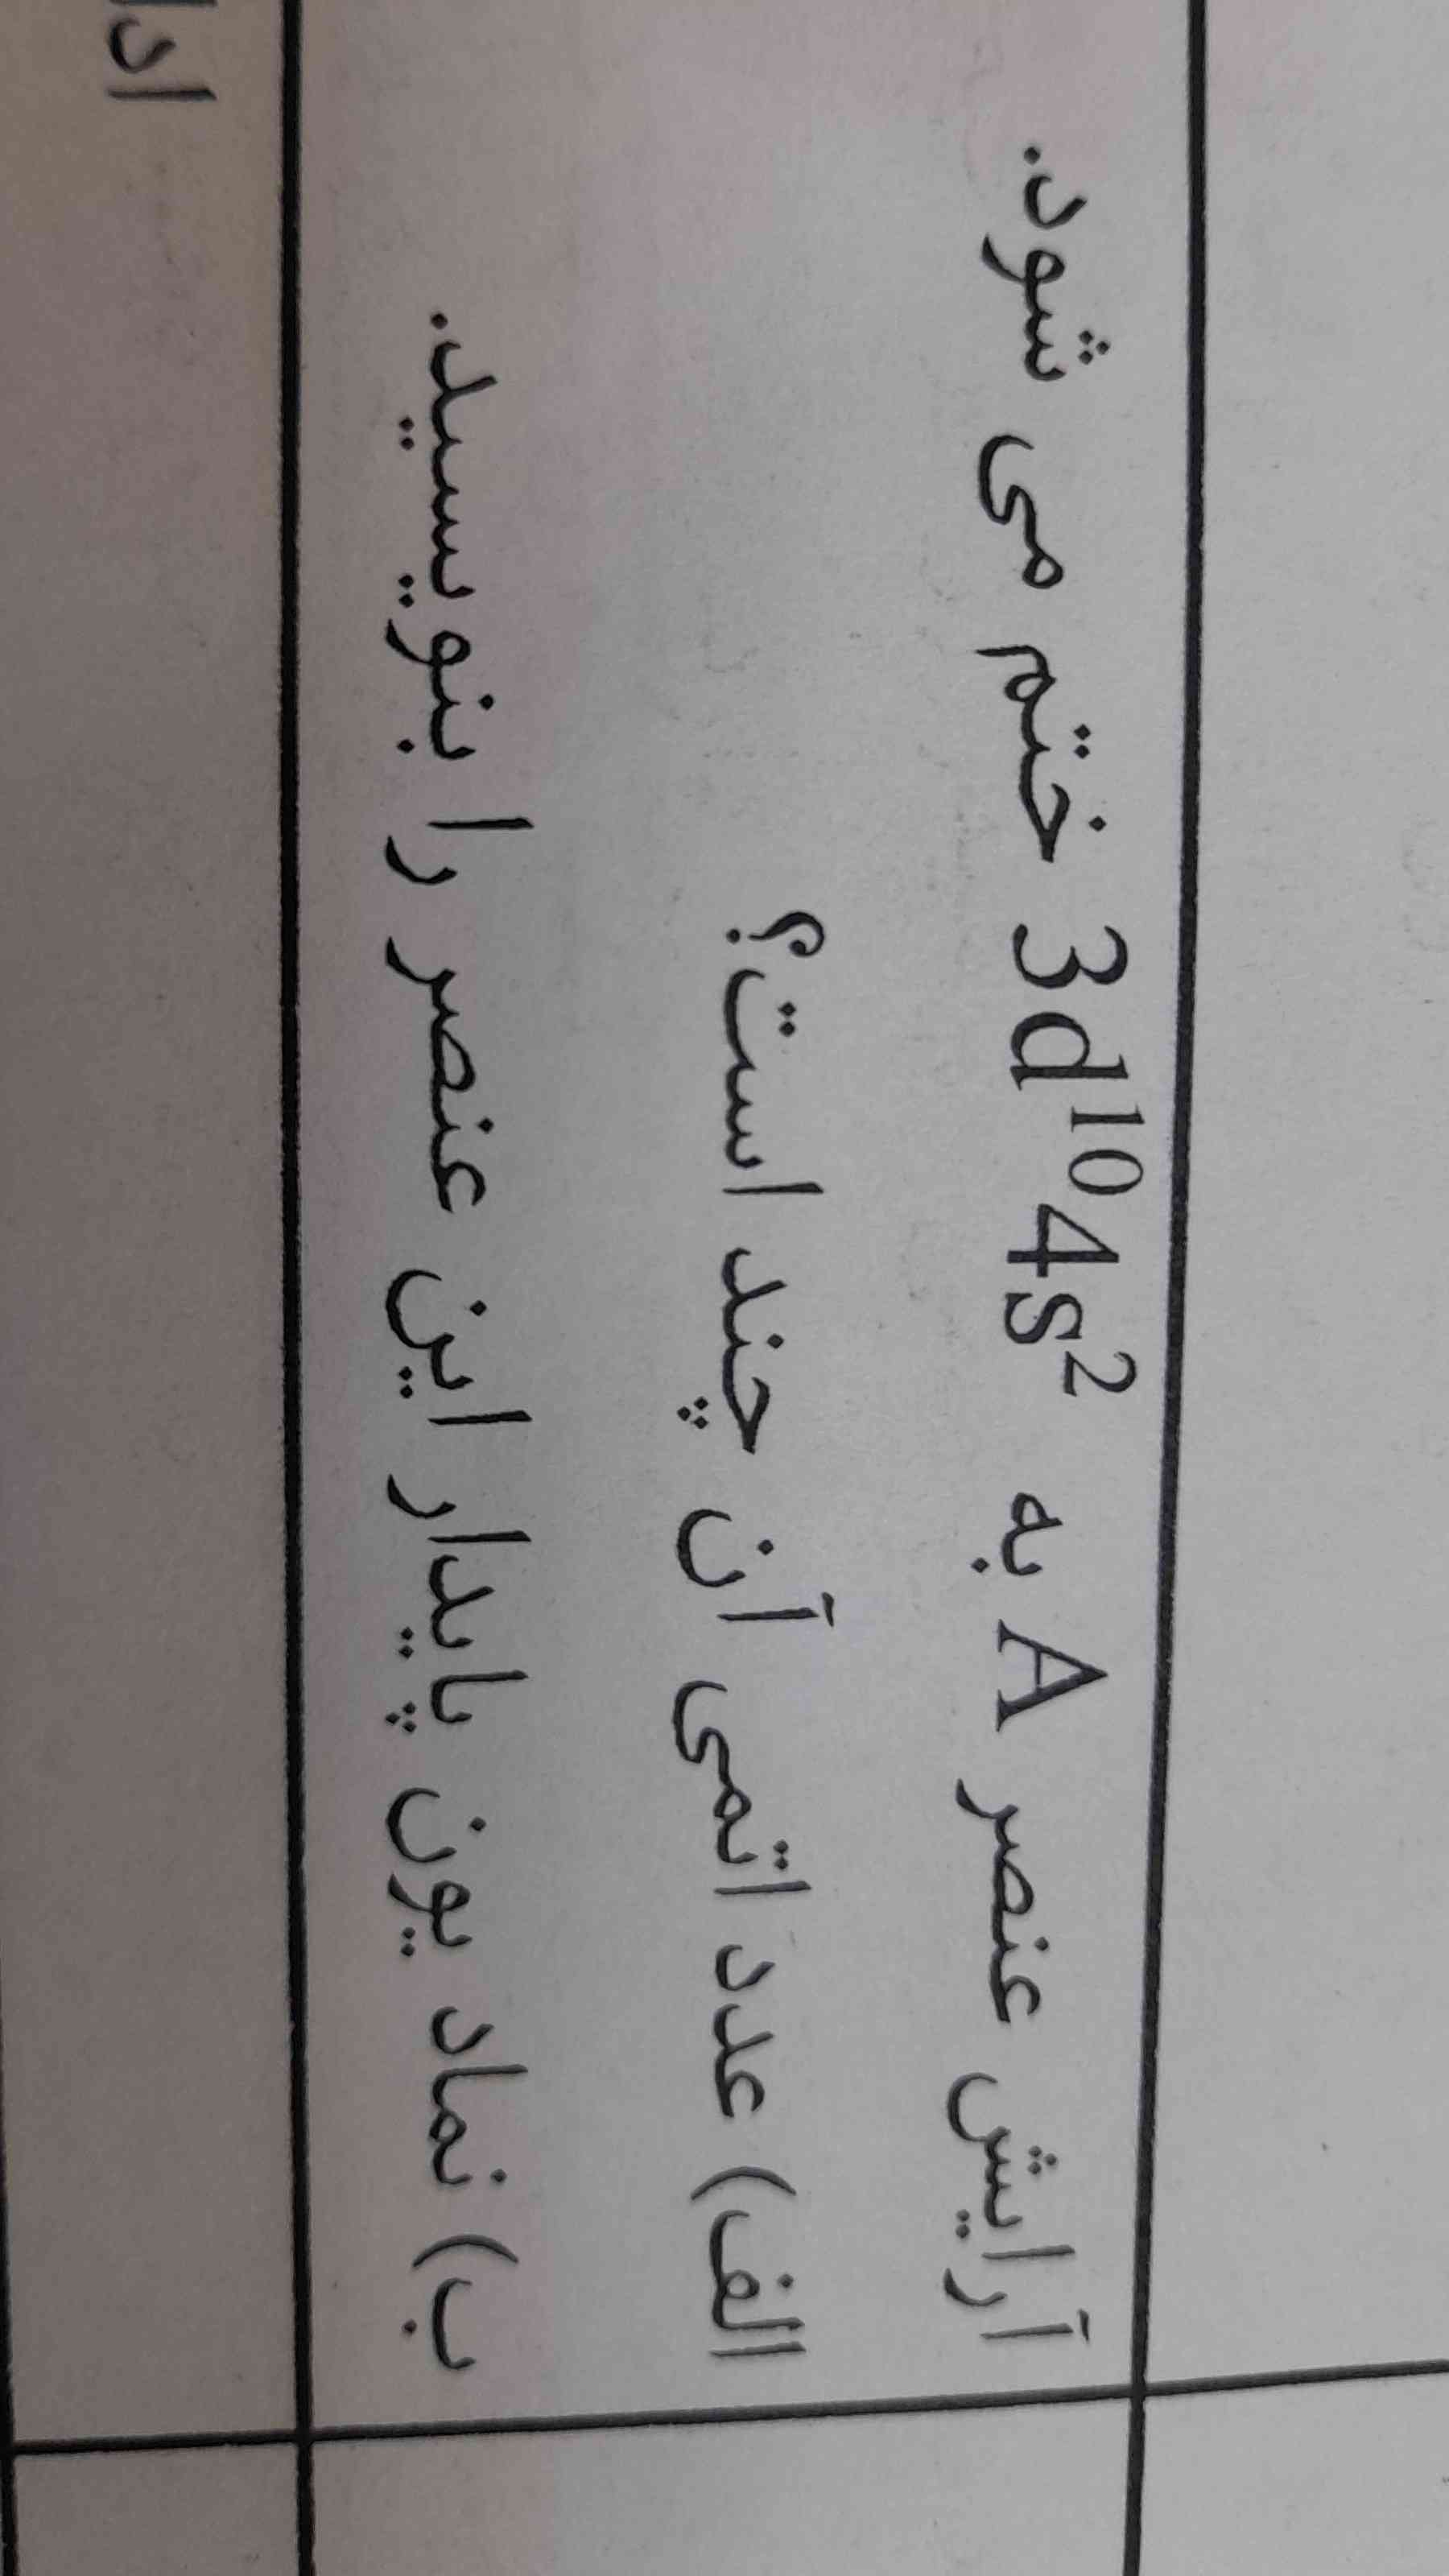 آرایش عنصر A به 3d¹⁰4s² ختم می شود.
الف) عدد اتمی آن چند است؟
ب) نماد یون پایدار این عنصر را بنویسید.